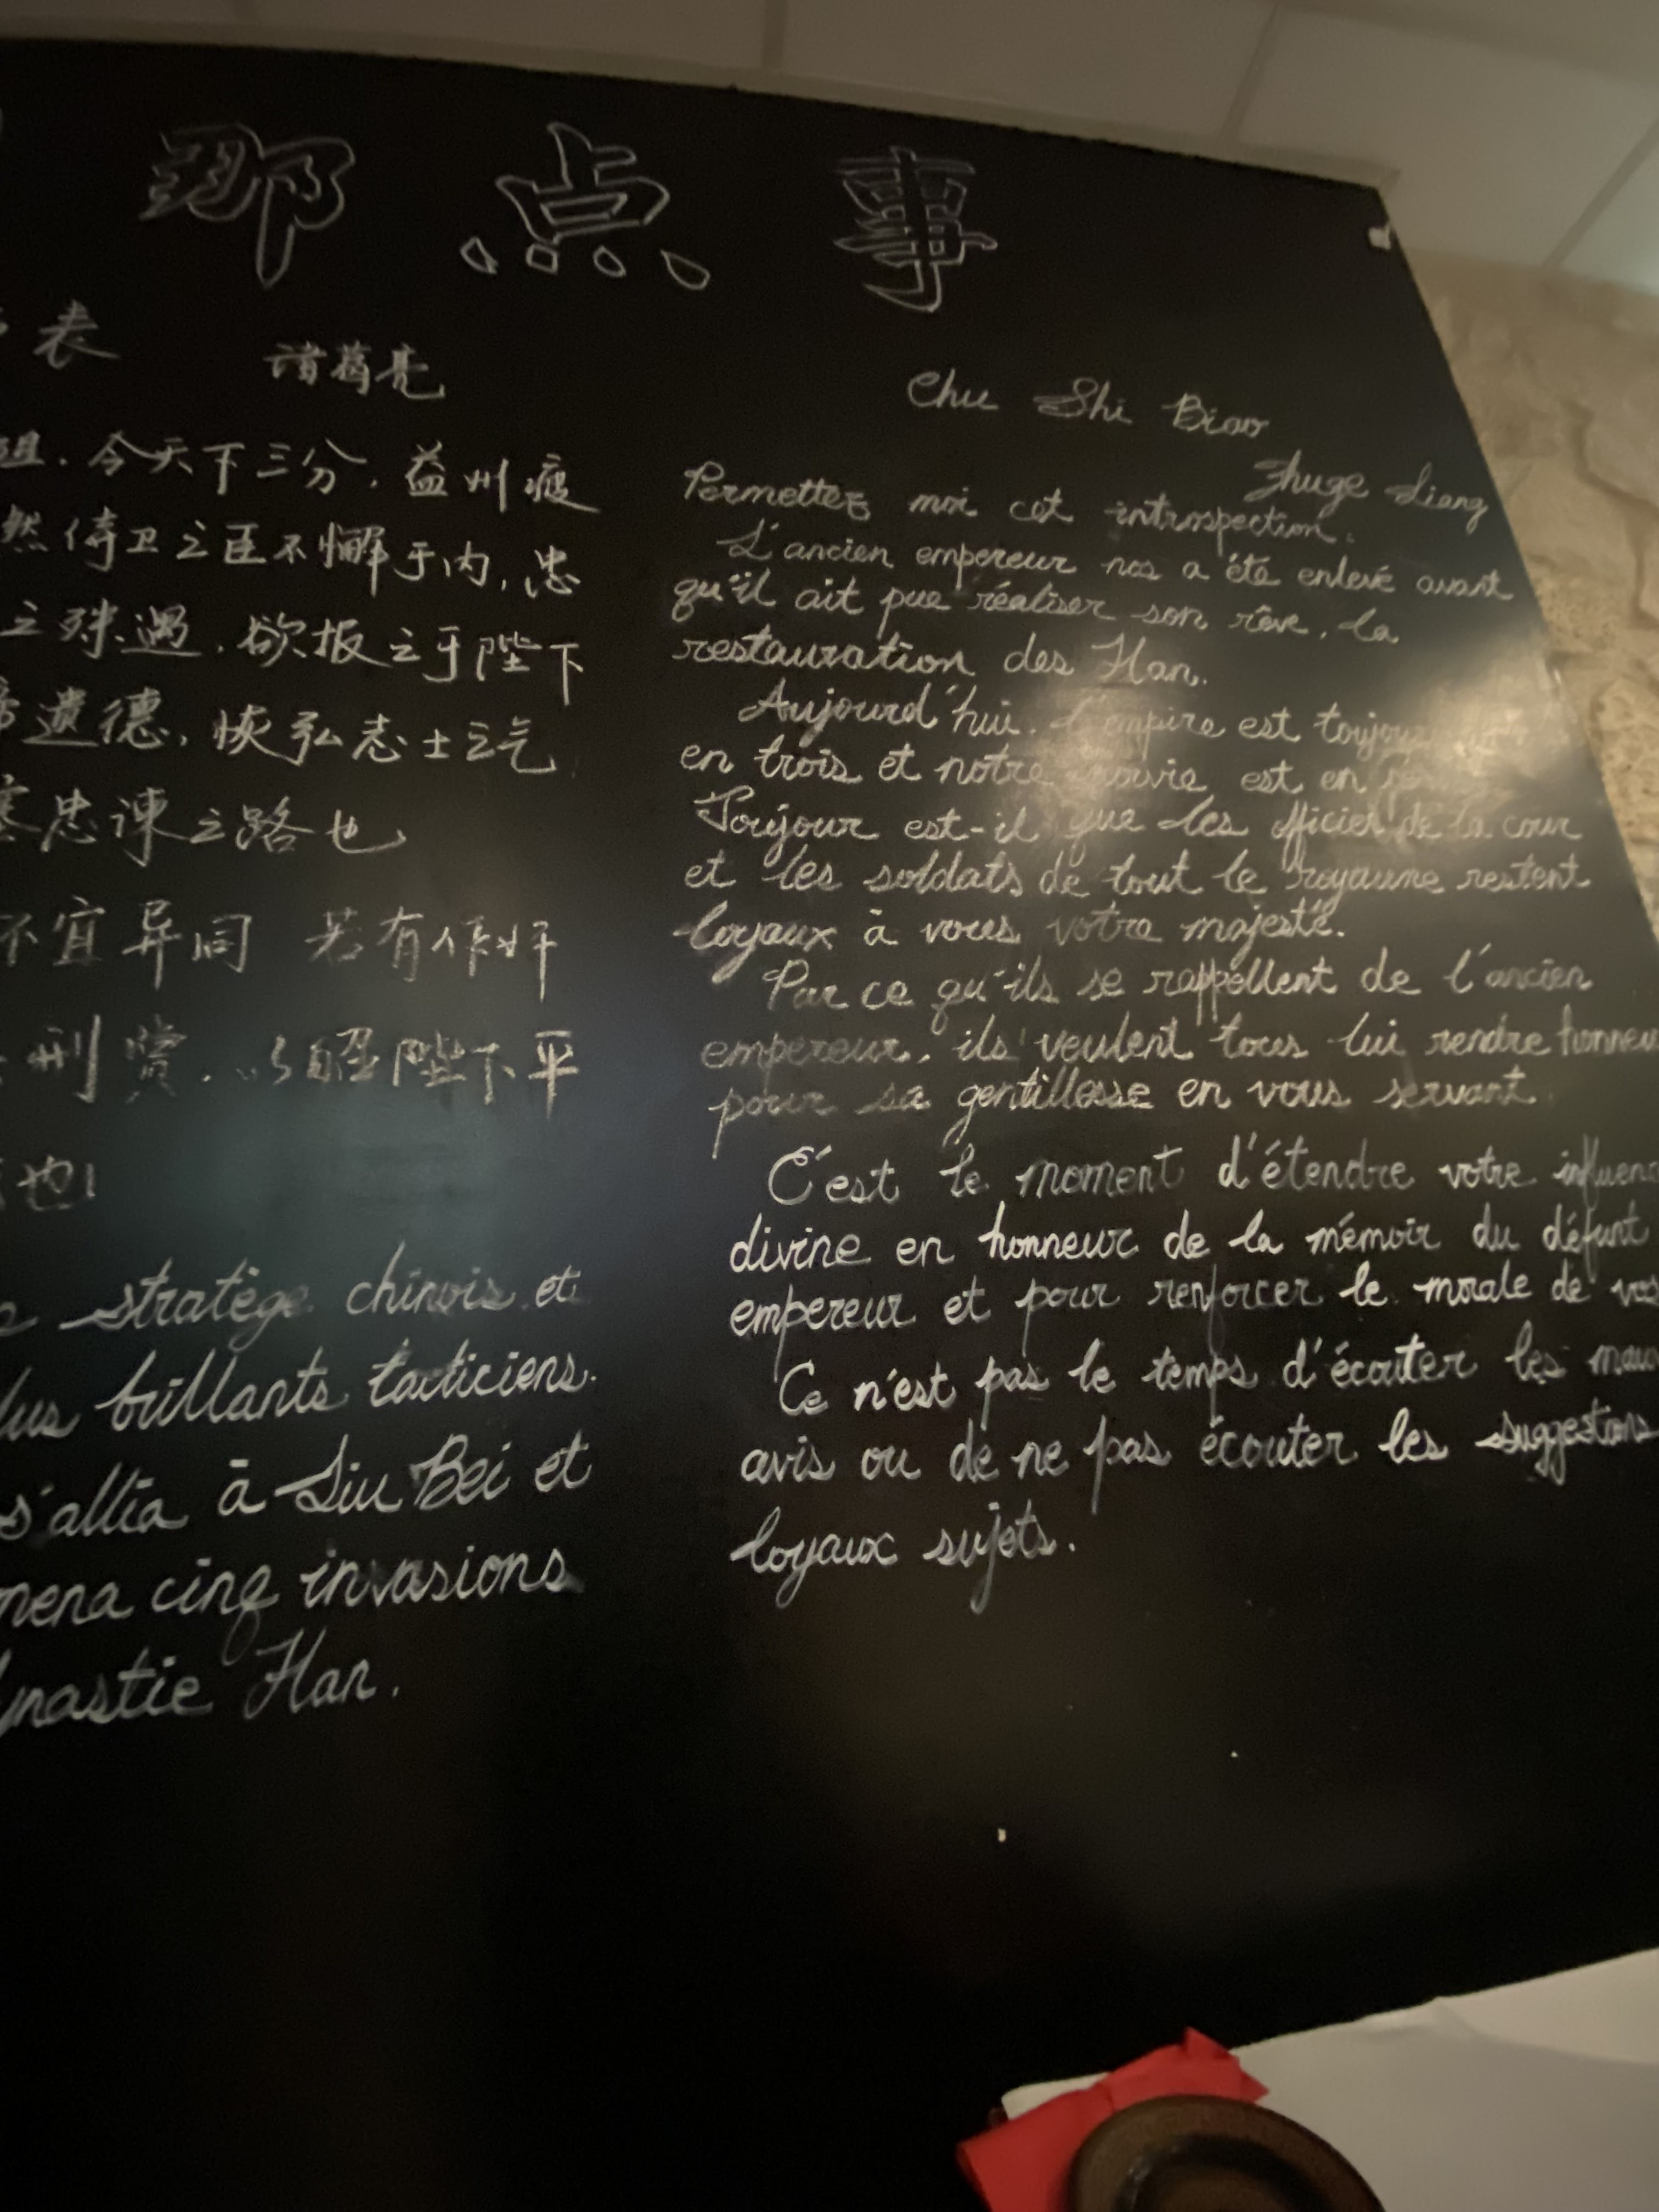 那点事
表 诸葛亮
今天下三分, 益州疲
然侍卫之臣不懈于内, 忠
之殊遇, 欲报之于陛下
遗德, 恢弘志士之气
塞忠谏之路也
不宜异同 若有作奸
刑赏, 以昭陛下平
也
stratège chinois et
brillants tacticiens.
s'allia à Liu Bei et
mena cinq invasions
dynastie Han.
Chu Shi Biao
Zhuge Liang
Permettez moi cet introspection.
L'ancien empereur nos a été enlevé avant
qu'il ait pue réaliser son rêve, la
restauration des Han.
Aujourd'hui, l'empire est toujours
en trois et notre est en
Toujour est-il que les officier de la cour
et les soldats de tout le royaume restent
loyaux à vous votre majesté.
Par ce qu'ils se rappellent de l'ancien
empereur, ils veulent tous lui rendre honneu
pour sa gentillesse en vous servant.
C'est le moment d'étendre votre influenc
divine en honneur de la mémoir du défunt
empereur et pour renforcer le morale de vos
Ce n'est pas le temps d'écouter les mauv
avis ou de ne pas écouter les suggestions
loyaux sujets.